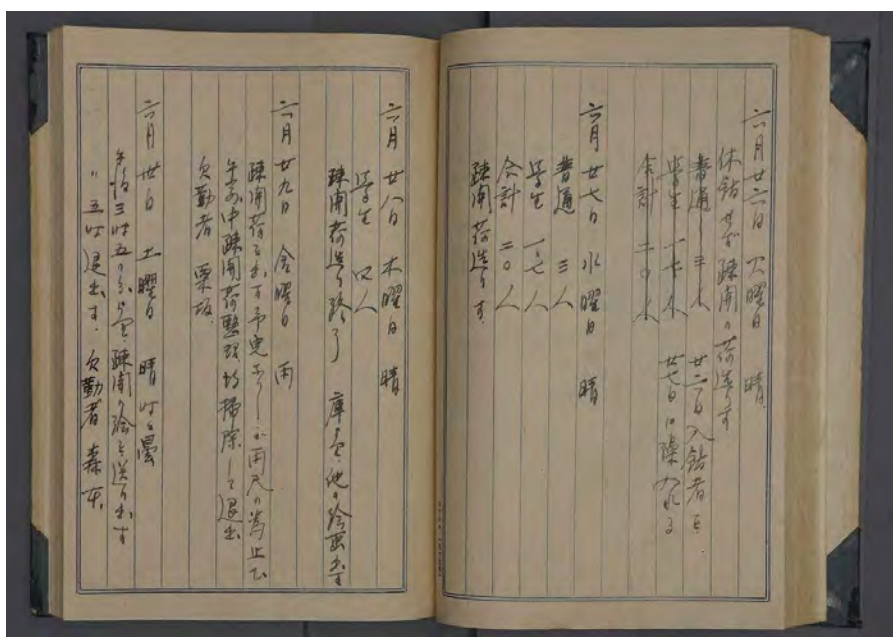 六月廿六日 火曜日 晴
休館せず疎開の荷造りす
普通 三人 廿六日入館者を
学生 一七人 廿七日に
合計 二〇人
六月廿七日 水曜日 晴
普通 三人
学生 一七人
合計 二〇人
疎開荷造りす
六月廿八日 木曜日 晴
学生 四人
疎開荷造り終了 庫を 他の絵画出す
六月廿九日 金曜日 雨
疎開荷を出す予定なりしが雨天の為止む
午前中疎開荷整理的掃除して退出
欠勤者 栗坂
六月卅日 土曜日 晴時々曇
午后三時五〇分 疎開の絵を送り出す
〃 五時退出す 欠勤者 森本